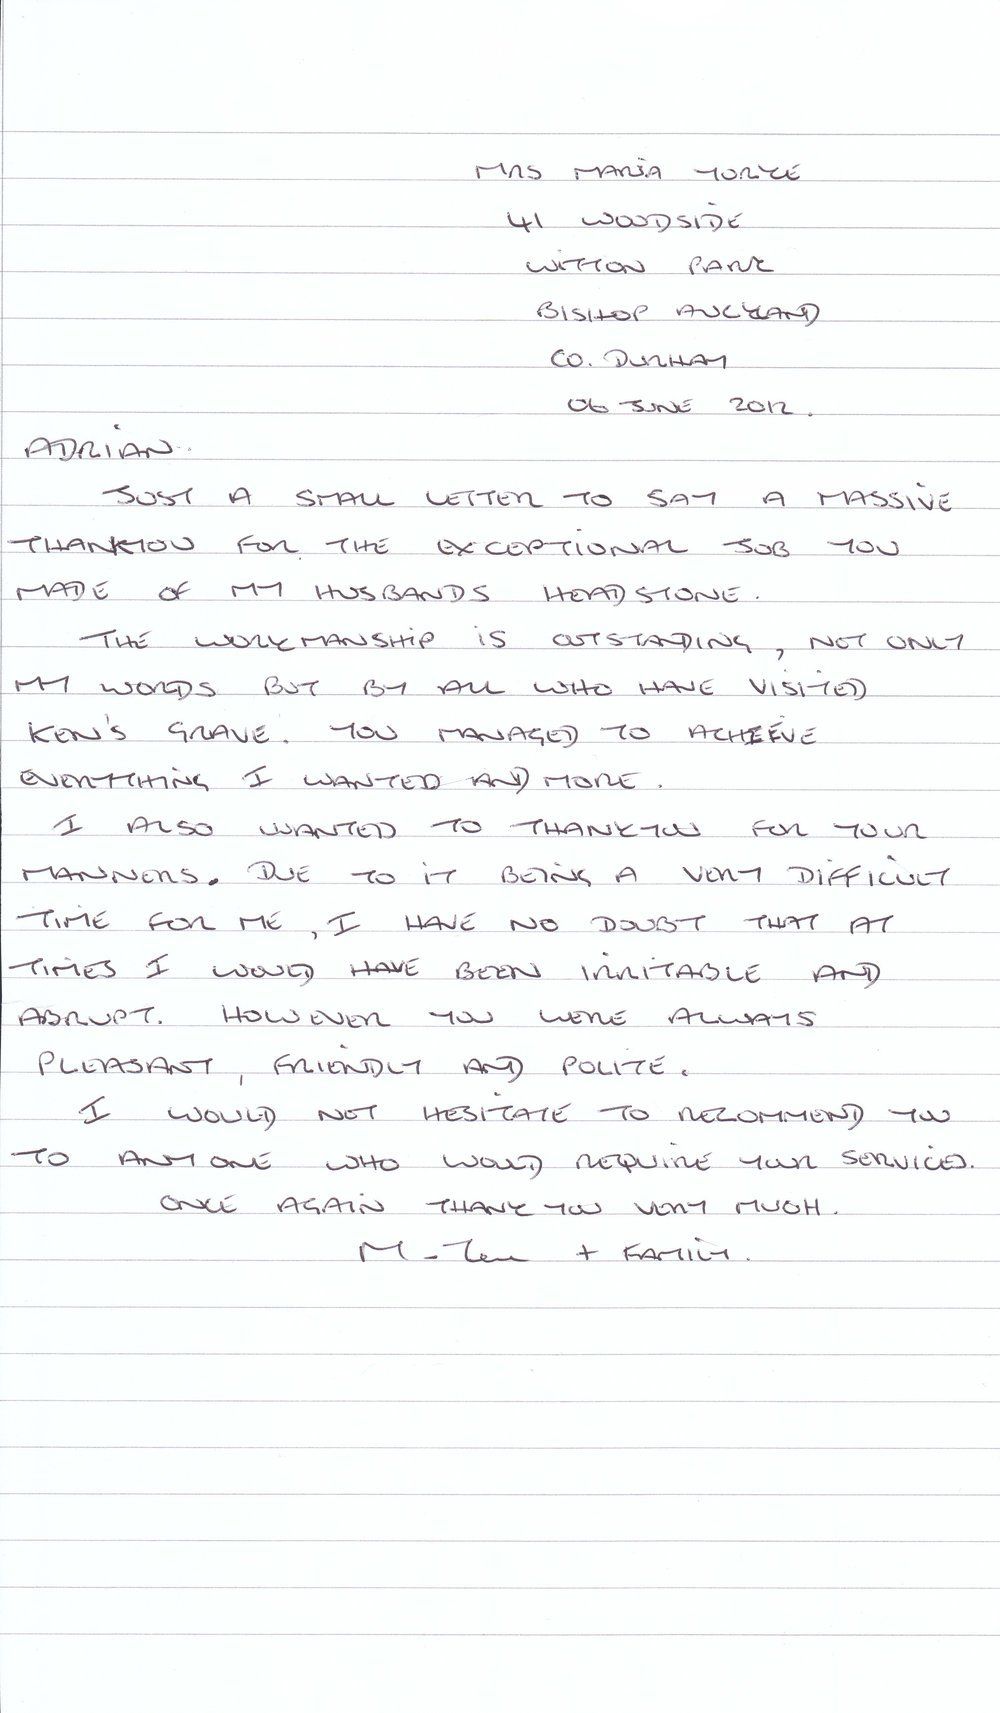 MRS MARIA YORKE
41 WOODSIDE
WITTON PARK
BISHOP AUCKLAND
CO. DURHAM
06 JUNE 2012.
ADRIAN.
JUST A SMALL LETTER TO SAY A MASSIVE
THANKYOU FOR THE EXCEPTIONAL JOB YOU
MADE OF MY HUSBANDS HEADSTONE.
THE WORKMANSHIP IS OUTSTANDING, NOT ONLY
MY WORDS BUT BY ALL WHO HAVE VISITED
KEN'S GRAVE. YOU MANAGED TO ACHIEVE
EVERYTHING I WANTED AND MORE.
I ALSO WANTED TO THANKYOU FOR YOUR
MANNERS. DUE TO IT BEING A VERY DIFFICULT
TIME FOR ME, I HAVE NO DOUBT THAT AT
TIMES I WOULD HAVE BEEN IRRITABLE AND
ABRUPT. HOWEVER YOU WERE ALWAYS
PLEASANT, FRIENDLY AND POLITE.
I WOULD NOT HESITATE TO RECOMMEND YOU
TO ANYONE WHO WOULD REQUIRE YOUR SERVICES.
ONCE AGAIN THANK YOU VERY MUCH.
M + FAMILY.